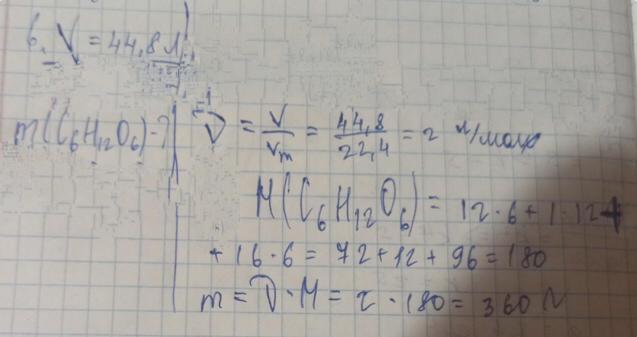 6. V = 44,8 л
m(C₆H₁₂O₆) - ? ν = V/Vm = 44,8/22,4 = 2 л/моль
M(C₆H₁₂O₆) = 12·6 + 1·12 +
+ 16·6 = 72 + 12 + 96 = 180
m = ν·M = 2·180 = 360